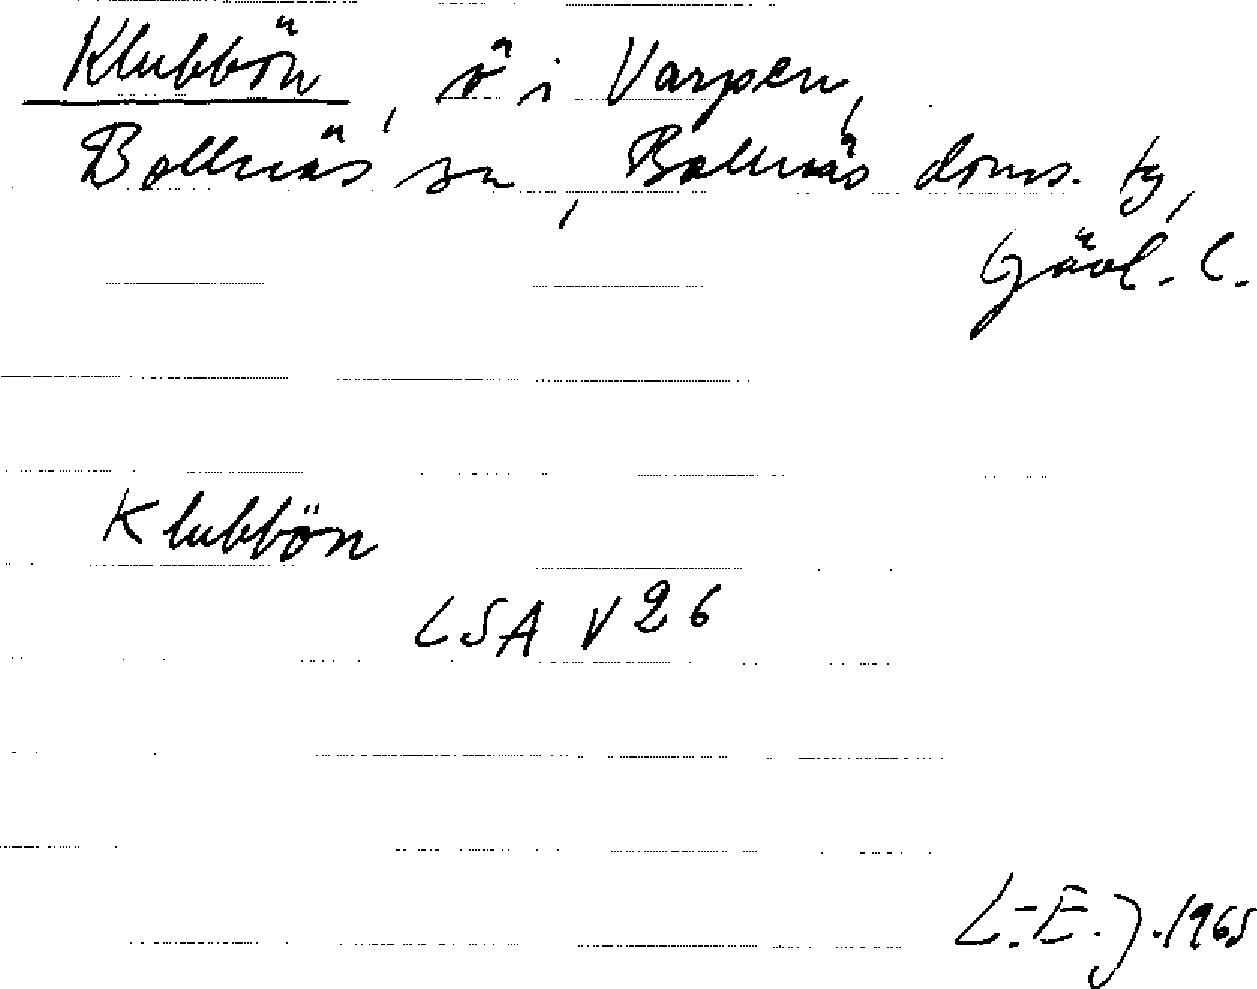 Klubbön, ö i Varpen,
Bollnäs sn, Bollnäs doms. tg,
Gävl. l.
Klubbön
LSA V 26
L.-E. J. 1965